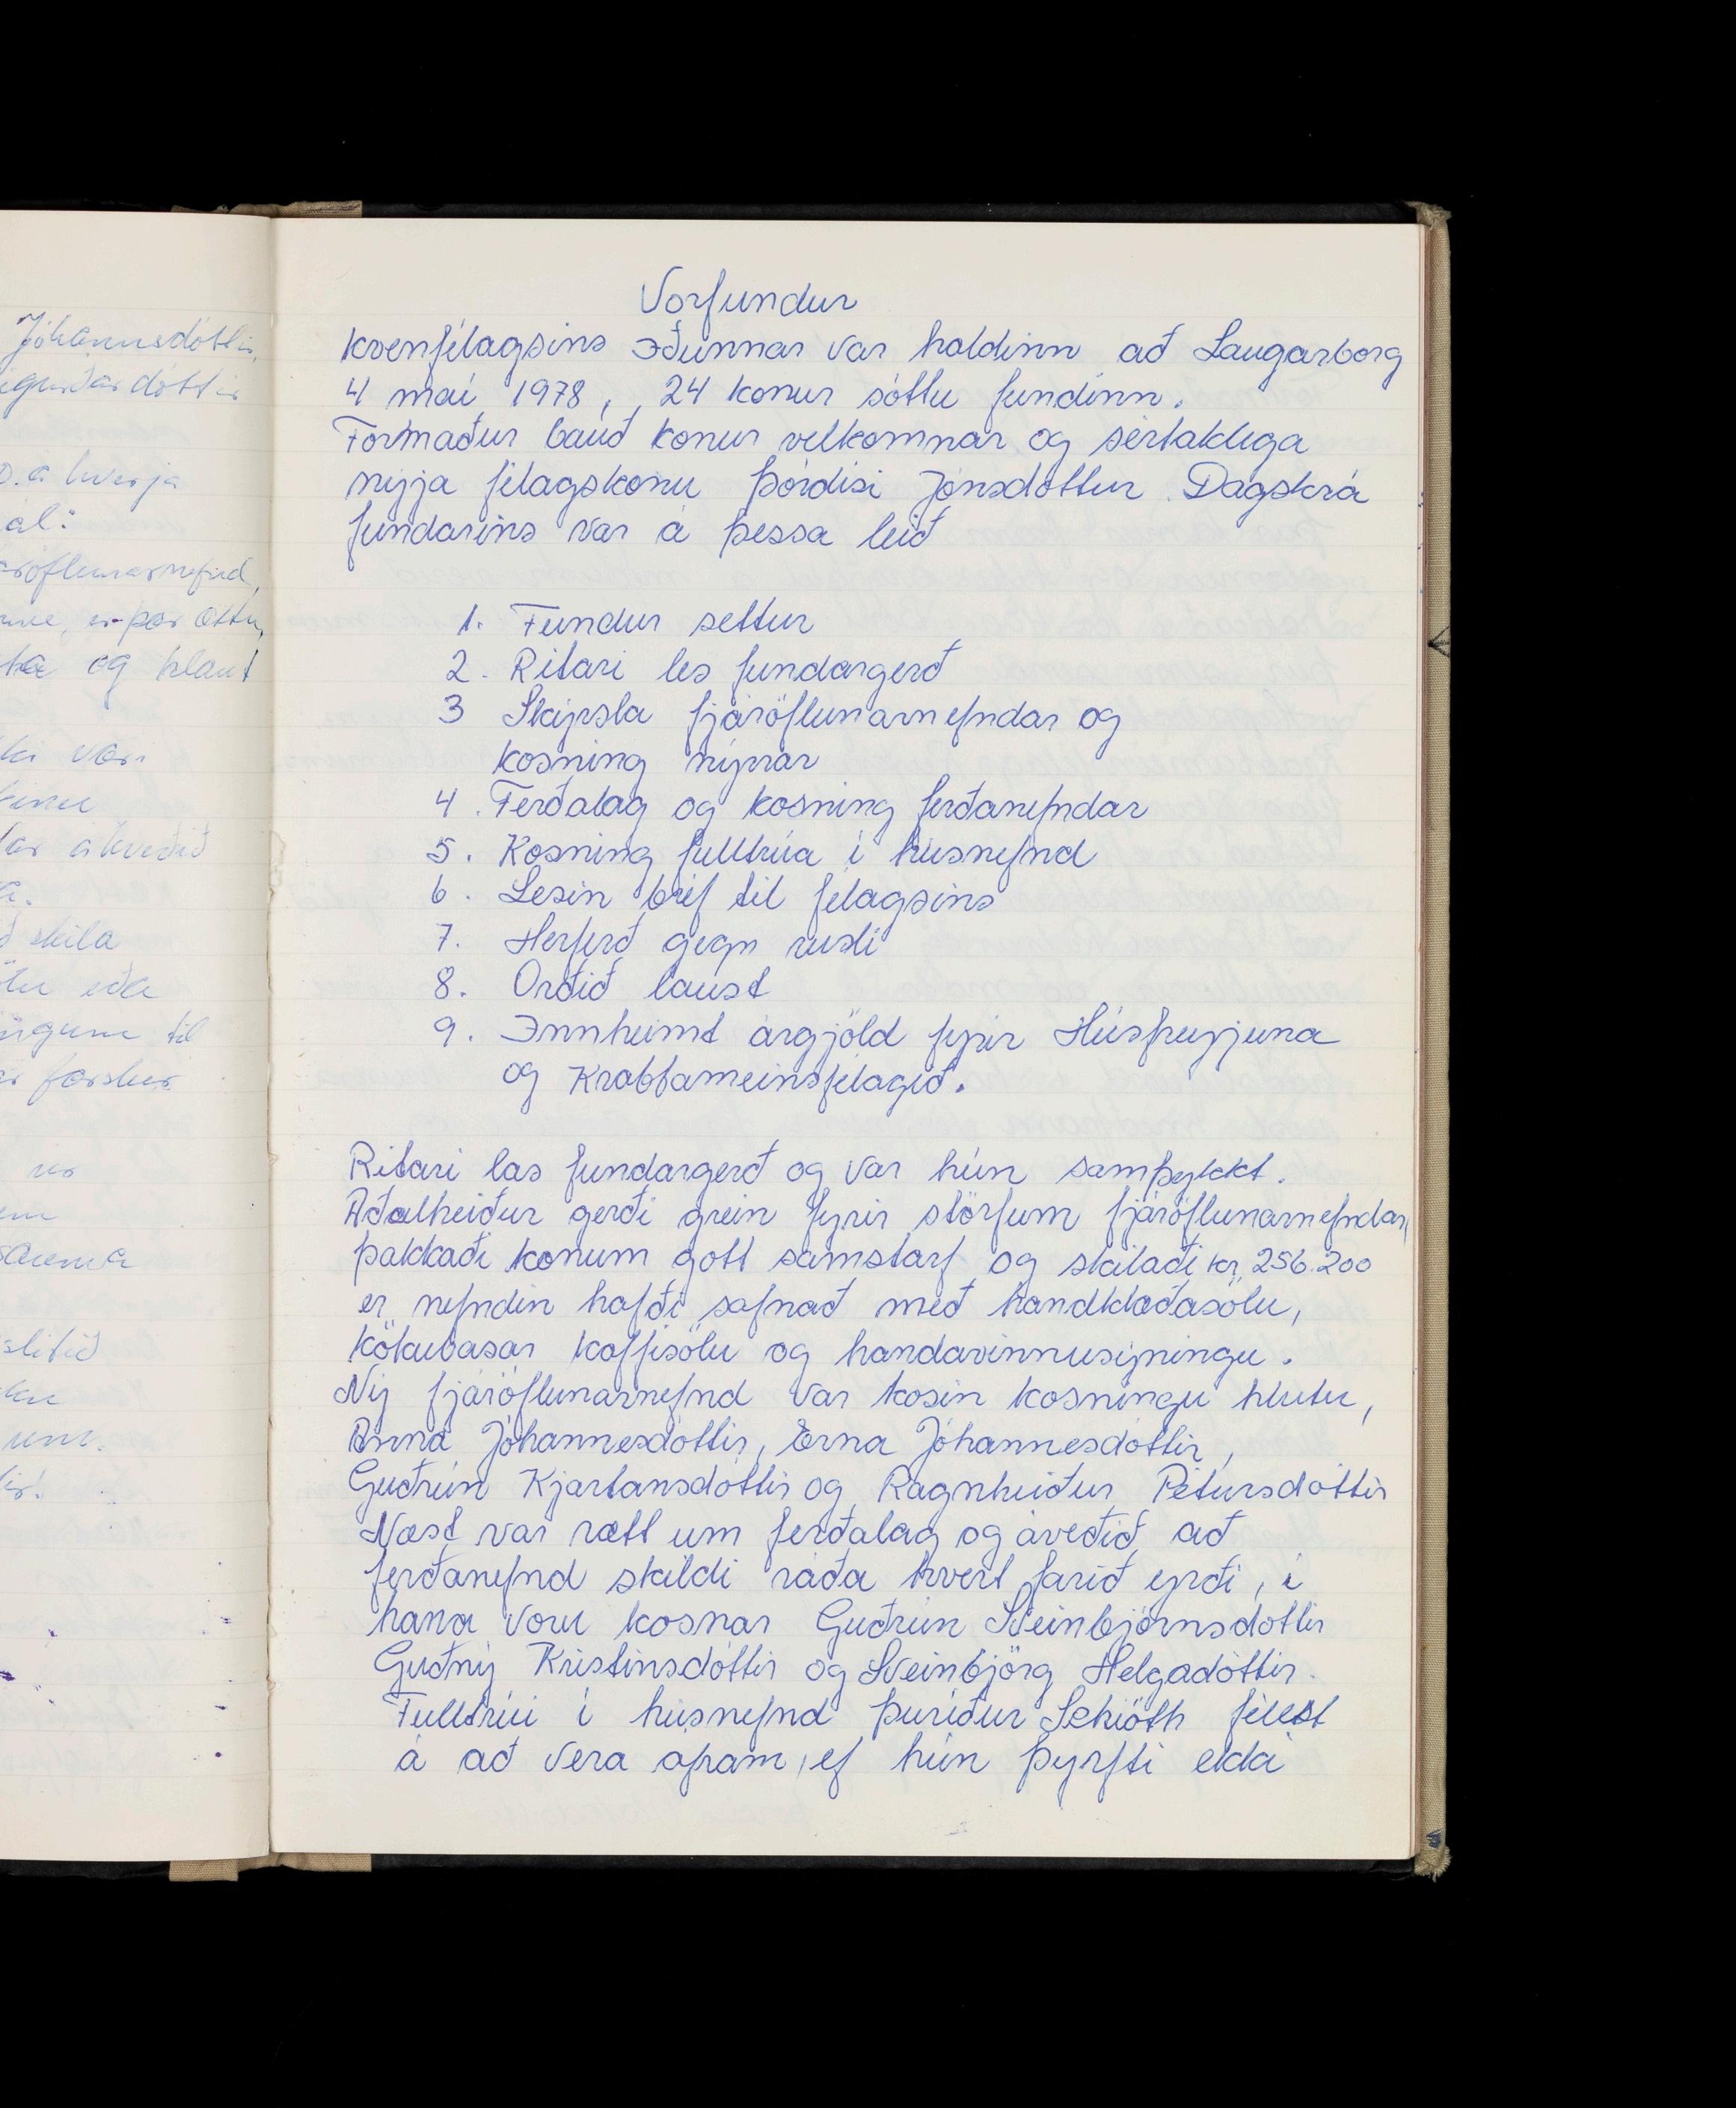 Jóhannsdóttir,
igurðardóttir
o.a hverja
ál:
ta og hlaut
ki væri
ar ákveðið
skila
ölu eða
ingum til
slitið
Vorfundur
kvenfélagsins Iðunnar var haldinn að Laugarborg
4 maí 1978, 24 konur sóttu fundinn.
Formaður bauð konur velkomnar og sértaklega
nýja félagskonu Þórdísi Jónsdóttur. Dagskrá
fundarins var á þessa leið
1. Fundur settur
2. Ritari les fundargerð
3 Skýrsla fjáröflunarnefndar og
kosning nýrrar
4. Ferðalag og kosning ferðanefndar
5. Kosning fulltrúa í húsnefnd
6. Lesin bréf til félagsins
7. Herferð gegn rusli
8. Orðið laust
9. Innheimt árgjöld fyrir Húsfreyjuna
og Krabbameinsfélagið.
Ritari las fundargerð og var hún samþykkt.
Aðalheiður gerði grein fyrir störfum fjáröflunarnefndar,
þakkaði konum gott samstarf og skilaði kr. 256.200
er nefndin hafði safnað með handklæðasölu,
kökubasar kaffisölu og handavinnusýningu.
Ný fjáröflunarnefnd var kosin kosningu hlutu,
Anna Jóhannesdóttir, Erna Jóhannesdóttir,
Guðrún Kjartansdóttir og Ragnheiður Pétursdóttir
Næst var rætt um ferðalag og áveðið að
ferðanefnd skildi ráða hvert farið yrði, í
hana voru kosnar Guðrún Sveinbjörnsdóttir
Guðný Kristinsdóttir og Sveinbjörg Helgadóttir.
Fulltrúi í húsnefnd Þuríður Schiöth félst
á að vera áfram, ef hún þyrfti ekki